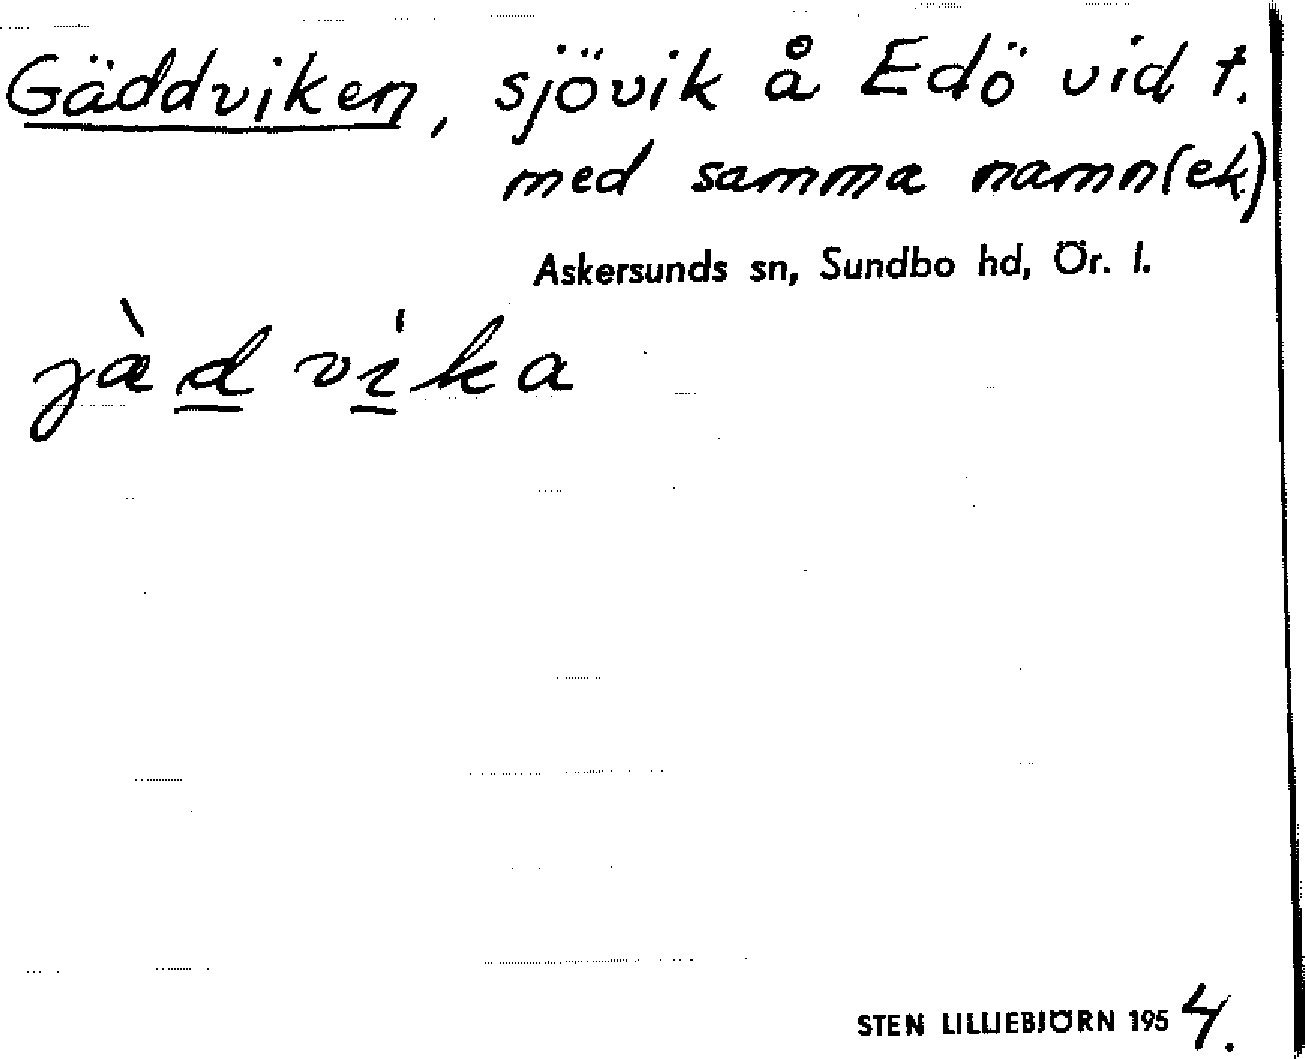 Gäddviken, sjövik å Edö vid t.
med samma namn(ek.)
Askersunds sn, Sundbo hd, Ör. l.
jàd vi̍ka
STEN LILLIEBJÖRN 1954.